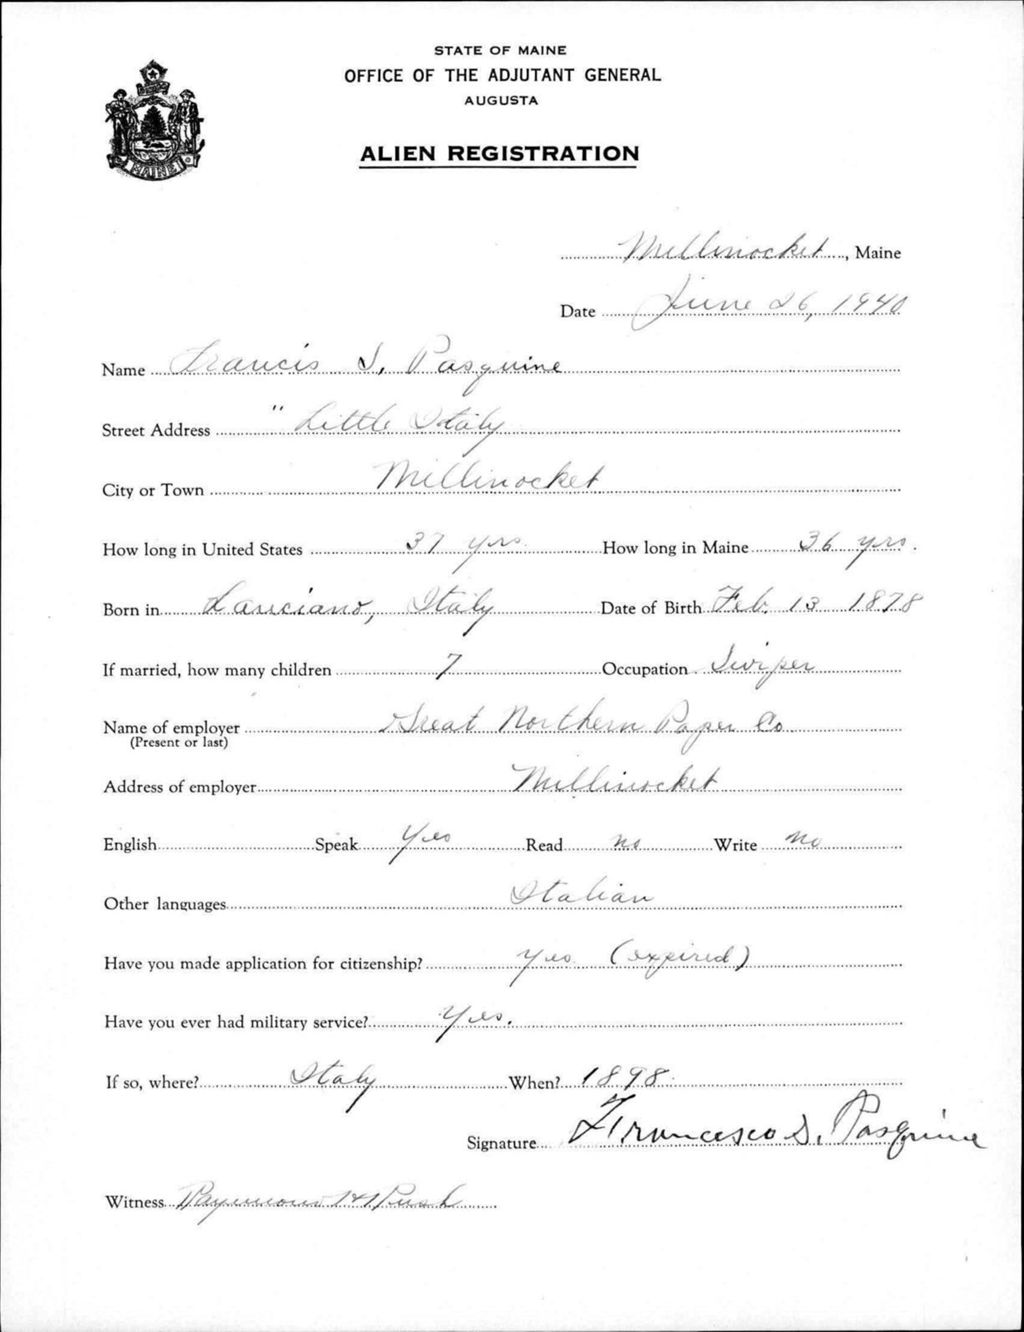 STATE OF MAINE
OFFICE OF THE ADJUTANT GENERAL
AUGUSTA
ALIEN REGISTRATION
MAINE
Millinocket, Maine
Date June 26, 1940
Name Francis S. Pasquine
Street Address " Little Italy
City or Town Millinocket
How long in United States 37 yrs How long in Maine 36 yrs.
Born in Lanciano, Italy Date of Birth Feb. 13 1878
If married, how many children 7 Occupation Swiper
Name of employer Great Northern Paper Co
(Present or last)
Address of employer Millinocket
English Speak Yes Read no Write no
Other languages Italian
Have you made application for citizenship? yes (expired)
Have you ever had military service? Yes.
If so, where? Italy When? 1898
Signature Francesco S. Pasquine
Witness Raymond H Rush